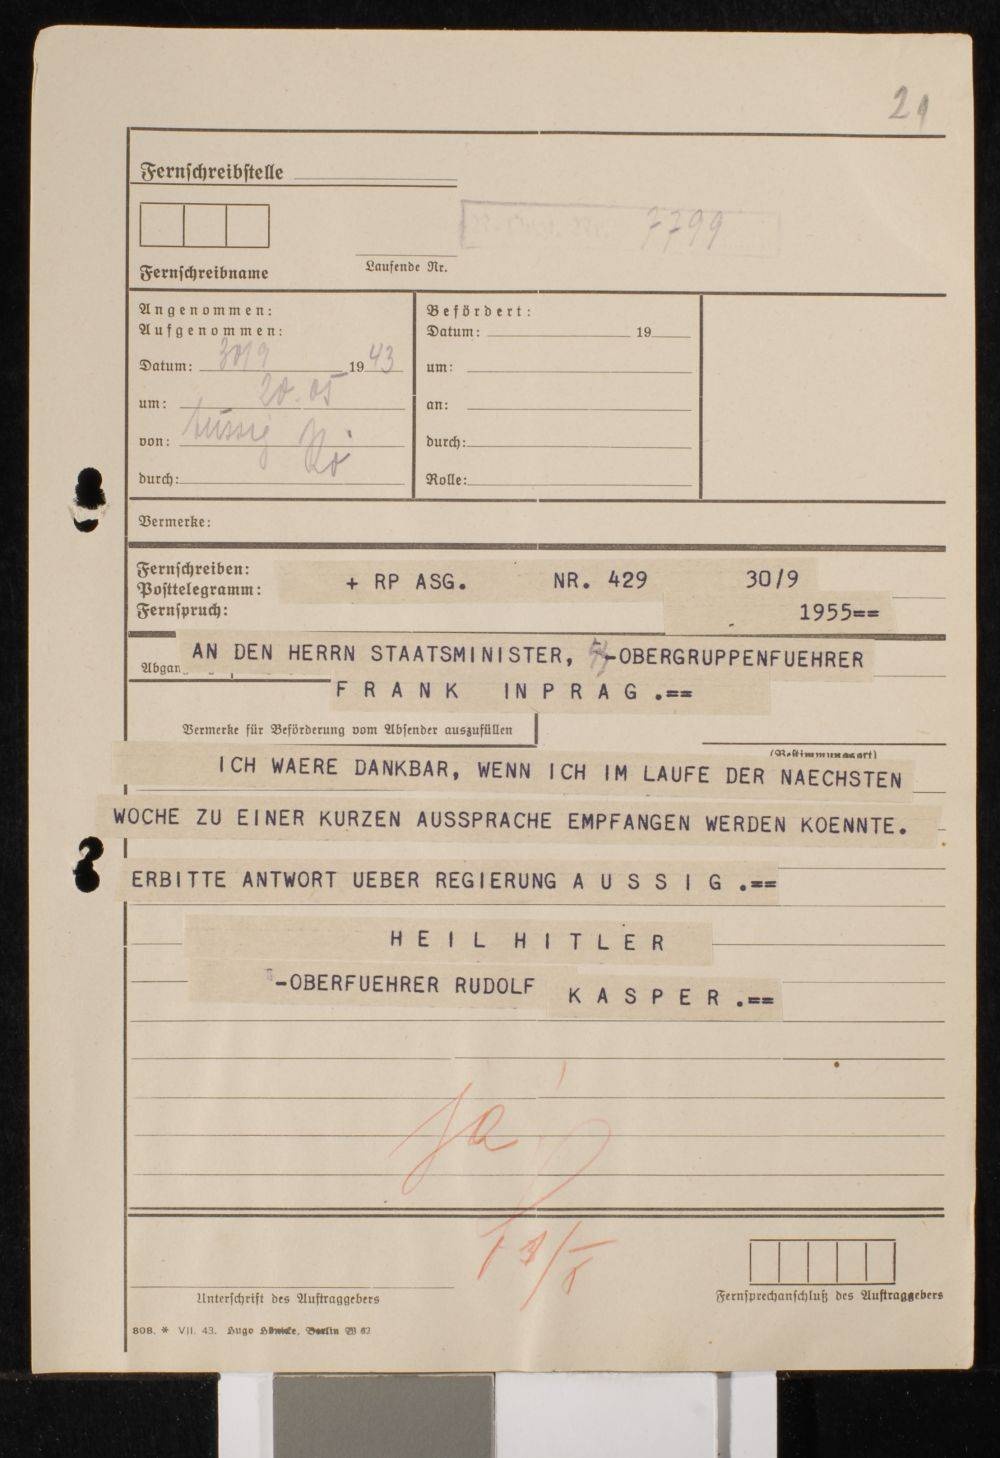 21
Fernschreibstelle
7799
Fernschreibname
Laufende Nr.
Angenommen:
Aufgenommen:
Datum: 30/9 1943
um: 20.05
von: Aussig
durch:
Befördert:
Datum: 19
um:
an:
durch:
Rolle:
Vermerke:
Fernschreiben:
Posttelegramm:
Fernspruch:
+ RP ASG. NR. 429 30/9
1955==
AN DEN HERRN STAATSMINISTER, -OBERGRUPPENFUEHRER
Abgan
F R A N K IN P R A G .==
Vermerke für Beförderung vom Absender auszufüllen
(Bestimmungsort)
ICH WAERE DANKBAR, WENN ICH IM LAUFE DER NAECHSTEN
WOCHE ZU EINER KURZEN AUSSPRACHE EMPFANGEN WERDEN KOENNTE.
ERBITTE ANTWORT UEBER REGIERUNG A U S S I G .==
H E I L H I T L E R
-OBERFUEHRER RUDOLF K A S P E R .==
ja
Unterschrift des Auftraggebers
Fernsprechanschluß des Auftraggebers
808. * VII. 43. Hugo Hönicke, Berlin W 62